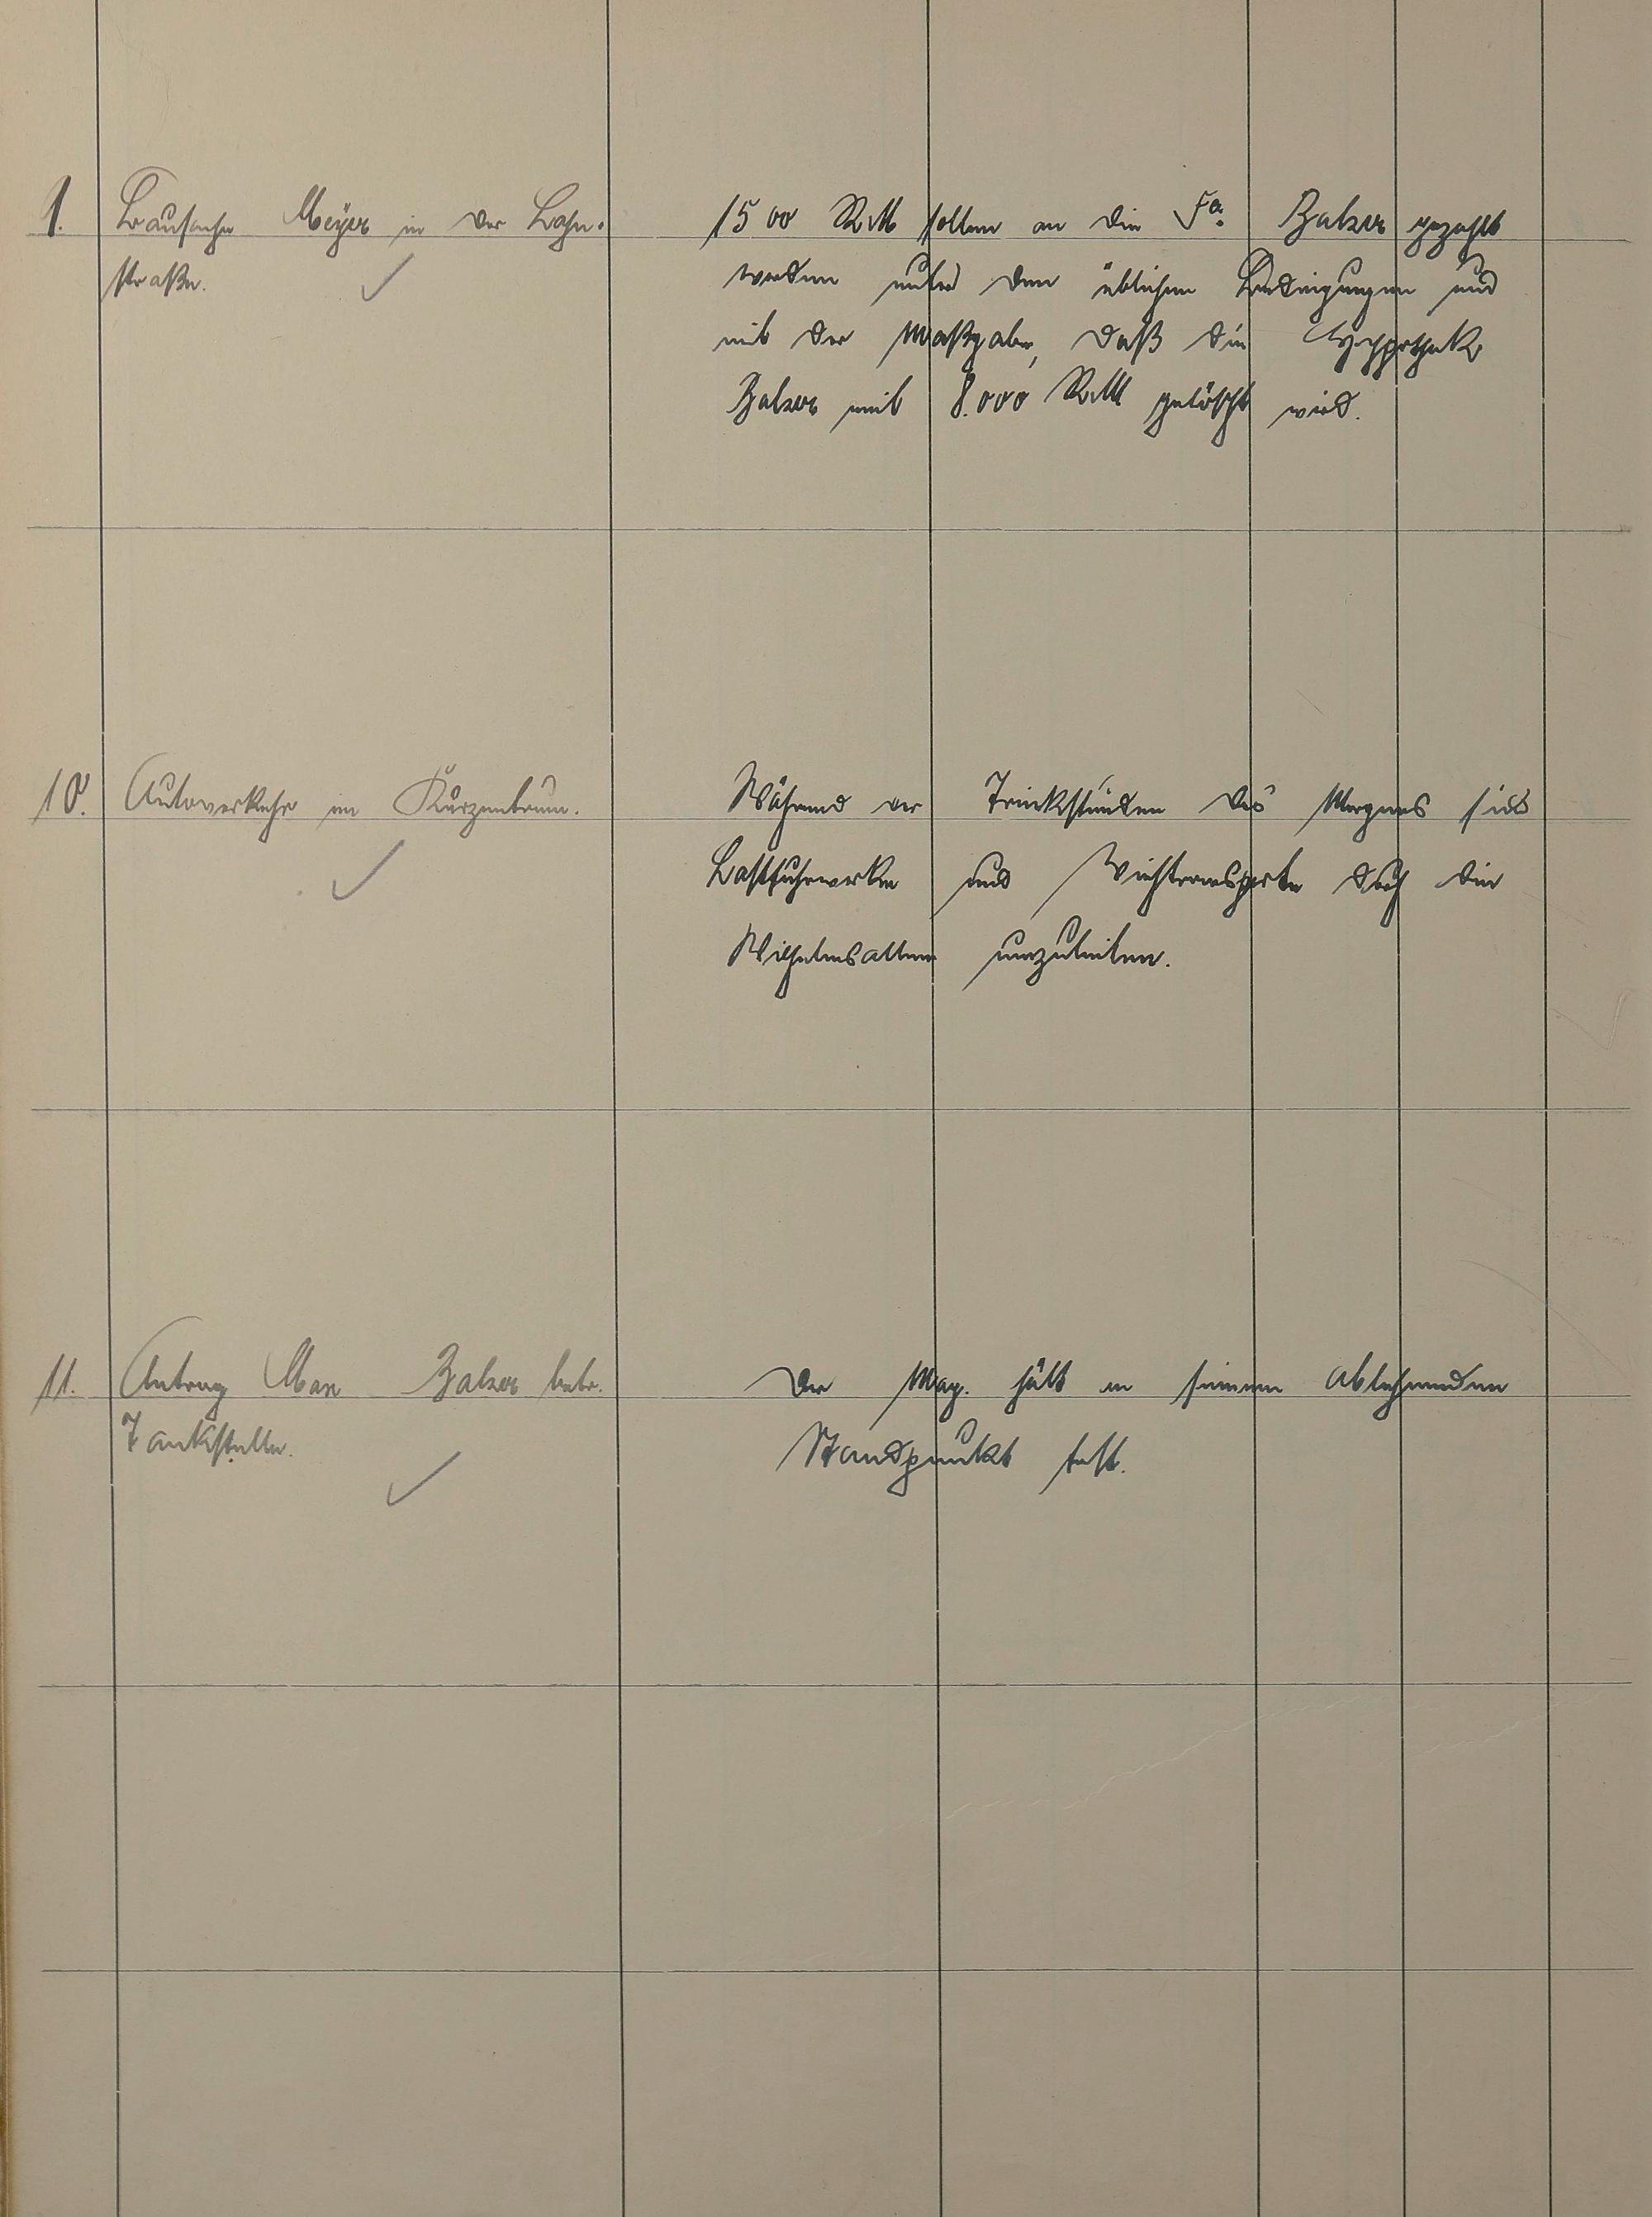 9. Bausache Meyer in der Lahn-
straße.
1500 RM sollen an die Fa. Balzer gezahlt
werden unter den üblichen Bedingungen und
mit der Maßgabe, daß die Hypothek
Balzer mit 8.000 RM gelöscht wird.
10. Autoverkehr im Kurzentrum.
Während der Trinkstunden des Morgens sind
Lastfuhrwerke und Viehtransporte durch die
Wilhelmsallee umzuleiten.
11. Antrag Max Balzer betr.
Tankstelle.
Der Mag. hält an seinem ablehnenden
Standpunkt fest.